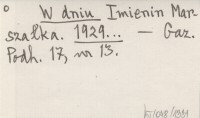 W dniu Imienin Mar-
szałka. 1929... — Gaz.
Podh. 17, nr 13.